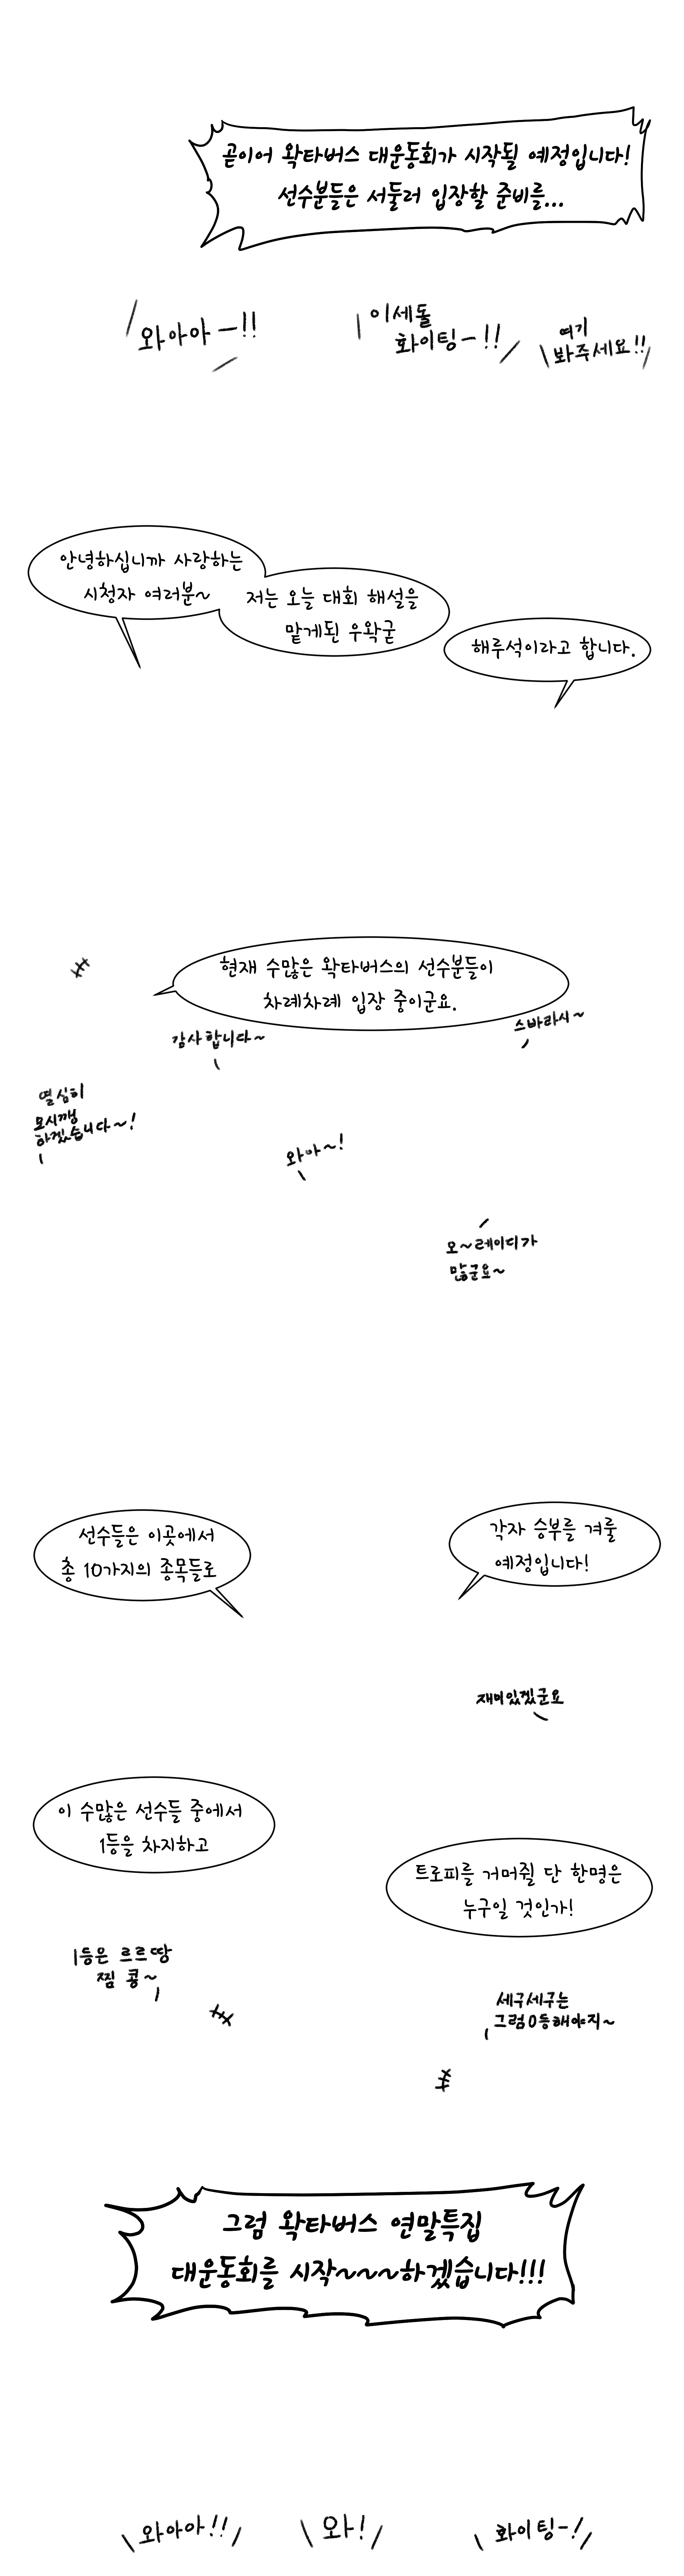 곧이어 왁타버스 대운동회가 시작될 예정입니다!
선수분들은 서둘러 입장할 준비를...
와아아ー!!
이세돌
화이팅ー!!
여기
봐주세요!!
안녕하십니까 사랑하는
시청자 여러분~
저는 오늘 대회 해설을
맡게된 우왁굳
해루석이라고 합니다.
현재 수많은 왁타버스의 선수분들이
차례차례 입장 중이군요.
감사합니다~
스바라시~
열심히
모시깽
하겠습니다~!
와아~!
오~레이디가
많군요~
선수들은 이곳에서
총 10가지의 종목들로
각자 승부를 겨룰
예정입니다!
재미있겠군요
이 수많은 선수들 중에서
1등을 차지하고
트로피를 거머쥘 단 한명은
누구일 것인가!
1등은 르르땅
찜 콩~
세구세구는
그럼 0등해야지~
그럼 왁타버스 연말특집
대운동회를 시작~~~하겠습니다!!!
와아아!!
와!
화이팅-!